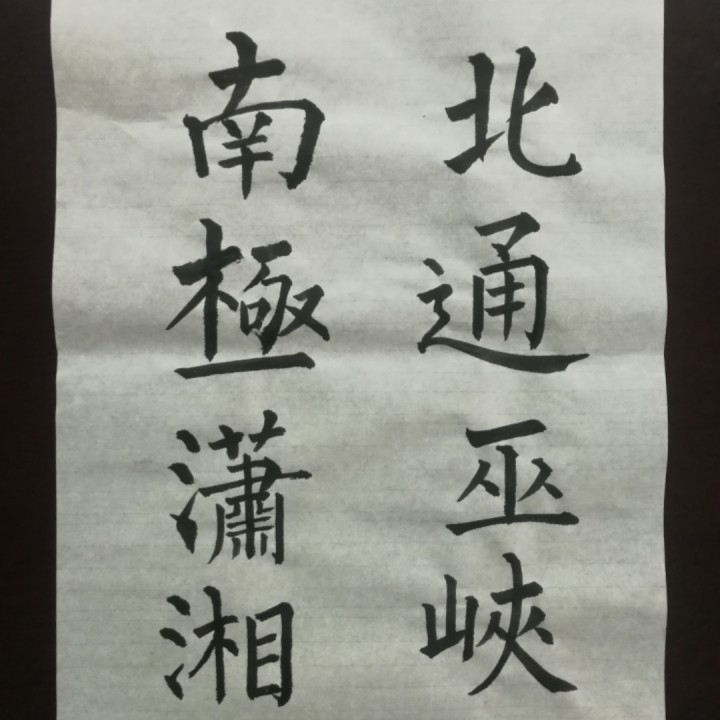 北通巫峽
南極瀟湘